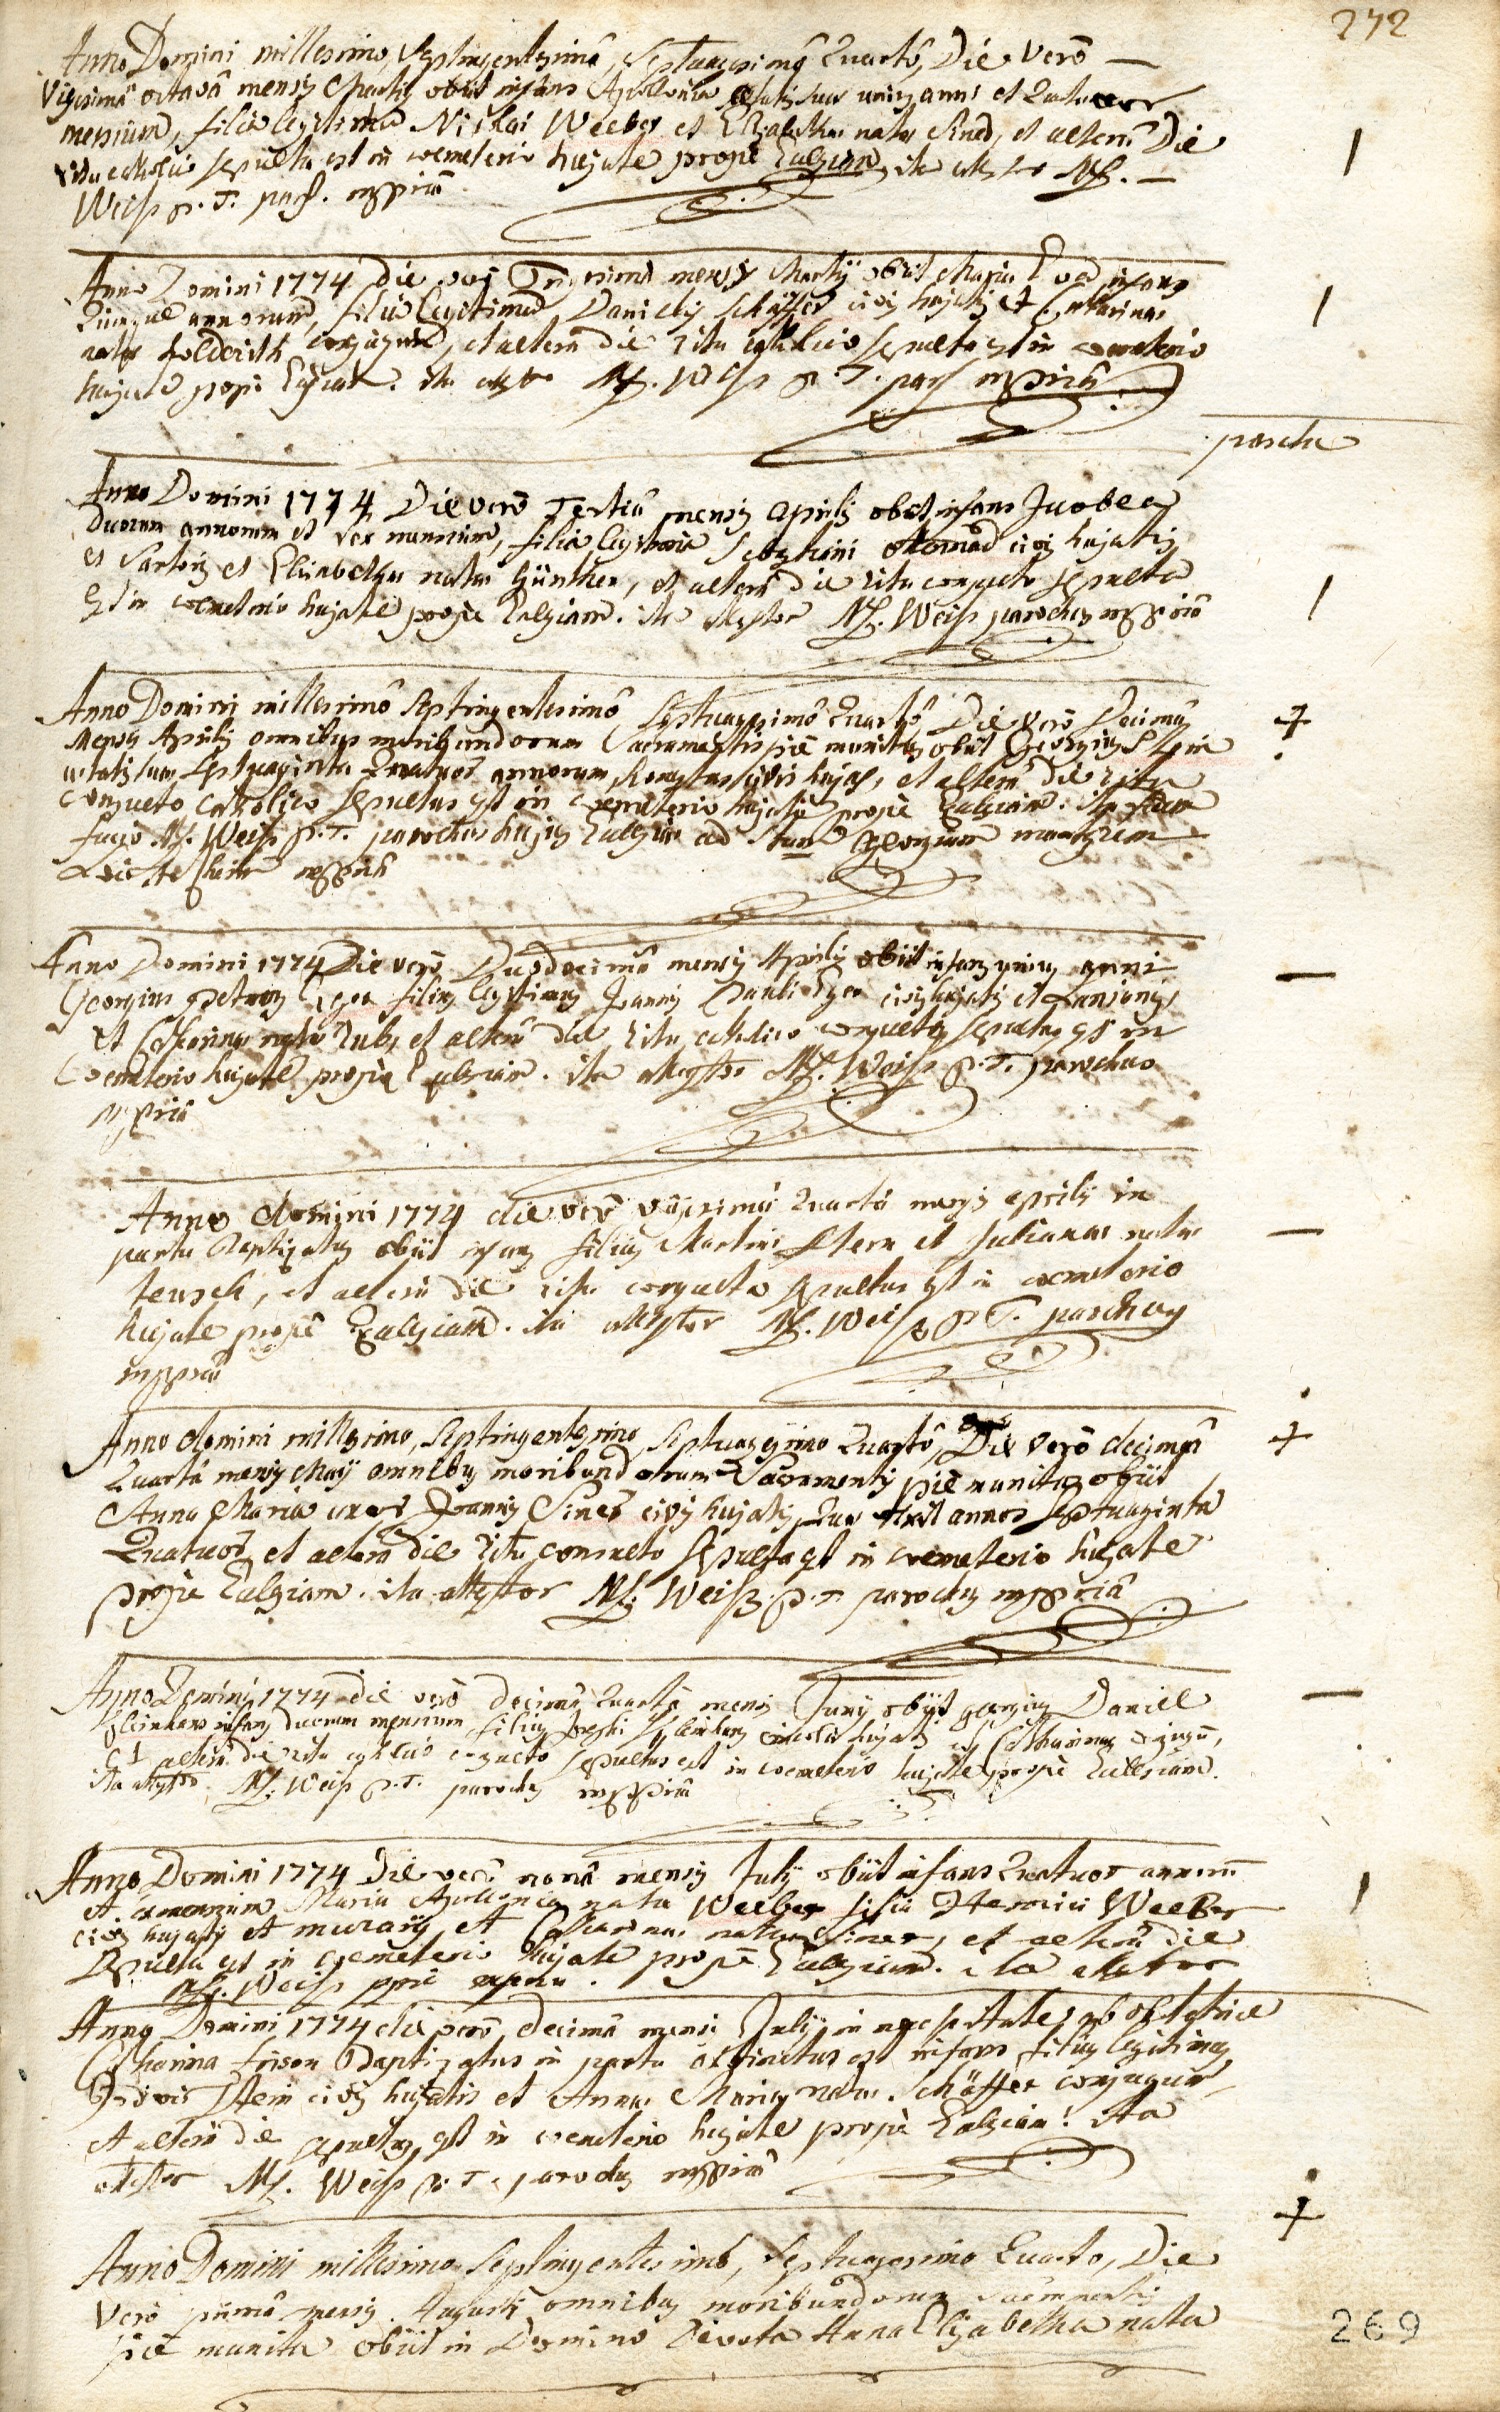 272
Anno Domini millesimo, Septingentesimô, Septuagesimô Quartô, Die Verô
Vigesimâ octavâ mensis Martij obiit infans Apollonia ætatis suæ unius anni et Quatuor
mensium, filia legitima Nicolai Weeber et Elisabethæ natæ, et alterâ Die
ritu catholico sepulta est in coemeterio hujate propè Ecclesiam, ita attestor M.
Weiss p. T. par. mppriâ
Anno Domini 1774 die verô Trigesimâ mensis Martij obiit Maria Eva infans
Quinque annorum, filia legitima Danielis Schäffer civis hujatis et Catharinæ
natæ conjugum, et alterâ die ritu catholico sepulta est in coemeterio
hujate propè Ecclesiam. ita attestor M. Weiss p. T. par. mppriâ
pascha
Anno Domini 1774 Die verô Tertiâ mensis Aprilis obiit infans Jacobea
duorum annorum et sex mensium, filia legitima Sebastiani civis hujatis
et Sartoris et Elisabethæ natæ Günther, et alterâ die ritu consueto sepulta
est in coemeterio hujate propè Ecclesiam. ita attestor M. Weiss parochus mppriâ
Anno Domini millesimô Septingentesimô Septuagesimô Quartô Die Verô Decimâ
Mensis Aprilis omnibus moribundorum Sacramentis piè munitus obiit Georgius Stein
ætatis suæ Septuaginta Quatuor annorum, civis hujas, et alterâ die ritu
consueto catholico sepultus est in coemeterio hujate propè Ecclesiam. ita fidem
facio M. Weiss p. T. parochus hujus Ecclesiæ ad Stum Georgium martyrem
mppriâ
Anno Domini 1774 Die verô Duodecimâ mensis Aprilis obiit infans unius anni
Georgius Petrus Eger filius legitimus Joannis Pauli Eger civis hujatis et Lanionis,
et Catharinæ natæ, et alterâ die ritu catholico consueto sepultus est in
Coemeterio hujate propè Ecclesiam. ita attestor M. Weiss p. T. parochus
mppriâ
Anno domini 1774 die verô vigesimâ Quartâ mensis aprilis in
partu Baptizatus obiit infans filius Martini Stern et Julianæ natæ
teusch, et alterâ die ritu consueto sepultus est in coemeterio
hujate propè Ecclesiam. ita attestor M. Weiss p. T. parochus
mppriâ
Anno domini millesimo, Septingentesimo, Septuagesimo Quartô, Die Verô decimâ
Quartâ mensis Maij omnibus moribundorum Sacramentis piè munita obiit
Anna Maria uxor Joannis Siner civis hujatis, Quæ vixit annos septuaginta
Quatuor et alterâ die ritu consueto sepulta est in coemeterio hujate
propè Ecclesiam. ita attestor M. Weiss p. T. parochus mppriâ
Anno Domini 1774 die verô Decimâ Quartâ mensis Junij obiit georgius Daniel
infans duorum mensium, filius Josephi hujatis et Catharinæ conjugum,
et alterâ die ritu catholico consueto sepultus est in coemeterio hujate propè Ecclesiam.
ita attestor M. Weiss p. T. parochus mppriâ
Anno Domini 1774 die verô nonâ mensis Julij obiit infans Quatuor annorum
et mensium Maria Apollonia nata Weeber filia Henrici Weeber
civis hujatis et murarij, et Catharinæ natæ Siner, et alterâ die
Sepulta est in coemeterio hujate propè Ecclesiam. ita attestor
M. Weiss ppriâ manu.
Anno Domini 1774 die verô decimâ mensis Julij in necessitate ab obstetrice
Catharina frison Baptizatus in partu extinctus est infans filius legitimus
civis hujatis et Annæ Mariæ natæ Schäffer conjugum,
et alterâ die sepultus est in coemeterio hujate propè Ecclesiam! ita
attestor M. Weiss p. T. parochus mppriâ
Anno Domini millesimo Septingentesimô, Septuagesimo Quarto, Die
Verô primâ mensis Augusti omnibus moribundorum sacramentis
piè munita obiit in Domino Devota Anna Elisabetha nata
269